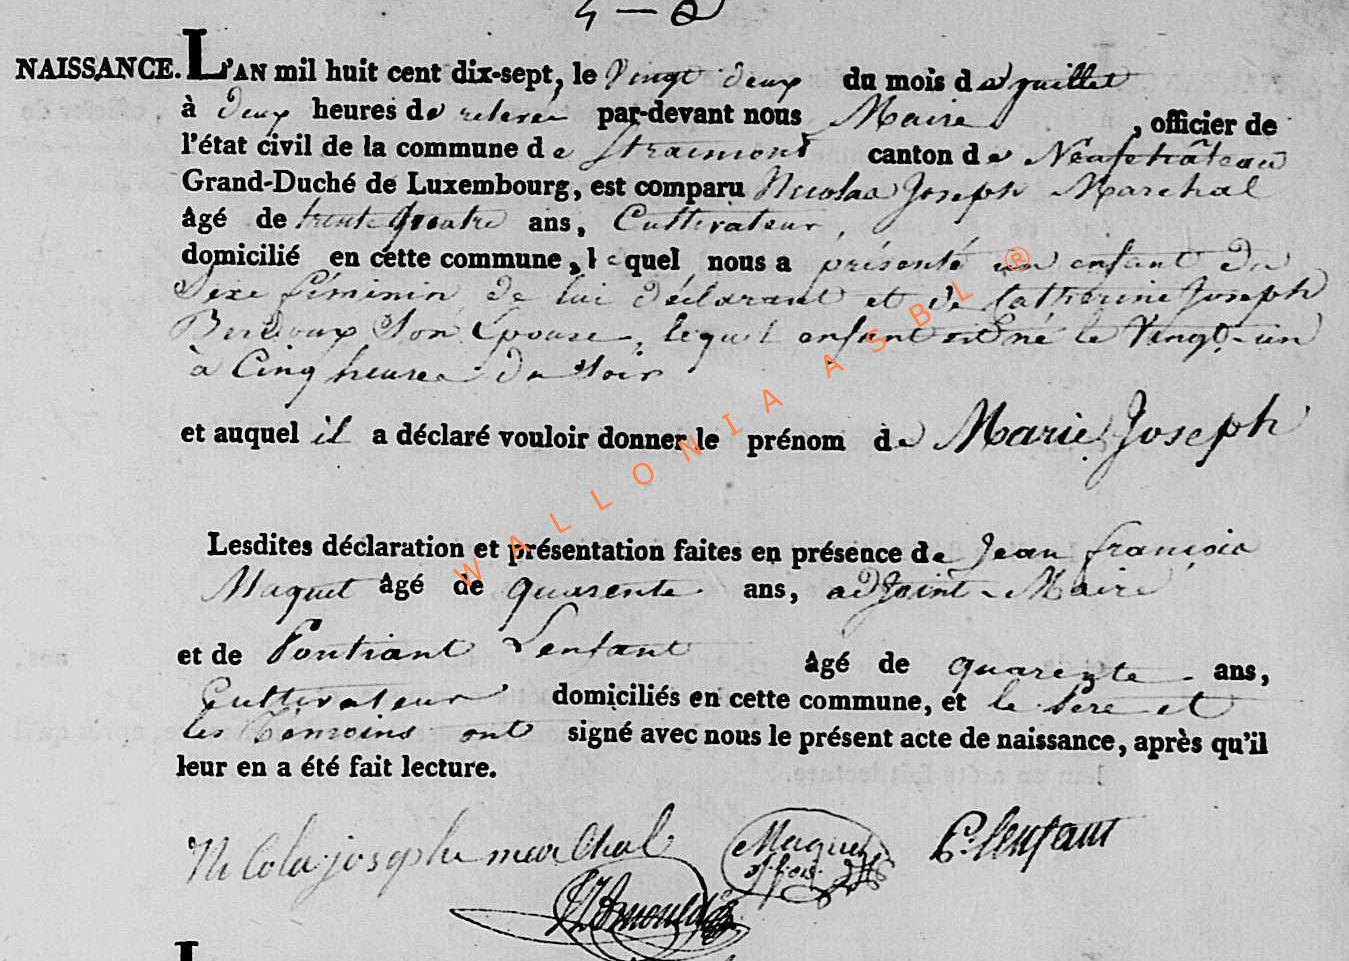 NAISSANCE. L'AN mil huit cent dix-sept, le Vingt deux du mois de juillet
à deux heures de relevée par-devant nous Maire , officier de
l'état civil de la commune de Straimont canton de Neufchâteau
Grand-Duché de Luxembourg, est comparu Nicolas Joseph Marchal
âgé de trente quatre ans, Cultivateur,
domicilié en cette commune, lequel nous a présenté un enfant du
Sexe féminin de lui déclarant et de Catherine Joseph
son Épouse, lequel enfant est né le Vingt-un
à Cinq heures du soir
et auquel il a déclaré vouloir donner le prénom de Marie Joseph
Lesdites déclaration et présentation faites en présence de Jean françois
Maquet âgé de quarente ans, adjoint-Maire
et de Pontiant Lenfant âgé de quarente ans,
Cultivateur domiciliés en cette commune, et le Père et
les Témoins ont signé avec nous le présent acte de naissance, après qu'il
leur en a été fait lecture.
Nicolas joseph marchal Maquet P. lenfant
WALLONIA ASBL ®